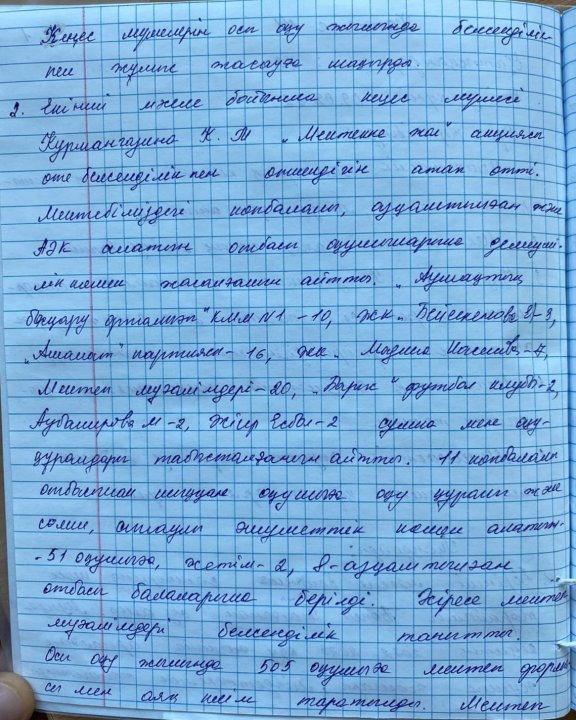 Кеңес мүшелерін осы оқу жылында белсенділік
пен жұмыс жасауға шақырды.
2. Екінші мәселе бойынша кеңес мүшесі
Курмангазина К. Т „Мектепке жол" акциясы
өте белсенділікпен өткендігін атап өтті.
Мектебіміздегі көпбалалы, аз қамтылған және
АӘК алатын отбасы оқушыларына демеуші-
лік көмек жасалғанын айтты. „Аумақтық
басқару орталығы" КММ №1 -10, жк. Бейсекенова -3,
„Аманат" партиясы - 16, жк. Мадина -7,
Мектеп мұғалімдері - 20, „Барыс" футбол клубы -2,
Аубакирова М -2, Жігер -2 сумка мен оқу-
құралдары табысталғанын айтты. 11 көпбалалы
отбасынан шыққан оқушыға оқу құралы және
сөмке, атаулы әлеуметтік көмек алатын
-51 оқушыға, жетім - 2, 8 - аз қамтылған
отбасы балаларына берілді. Әсіресе мектеп
мұғалімдері белсенділік танытты.
Осы оқу жылында 505 оқушыға мектеп форма-
сы мен аяқ киім таратылды. Мектеп